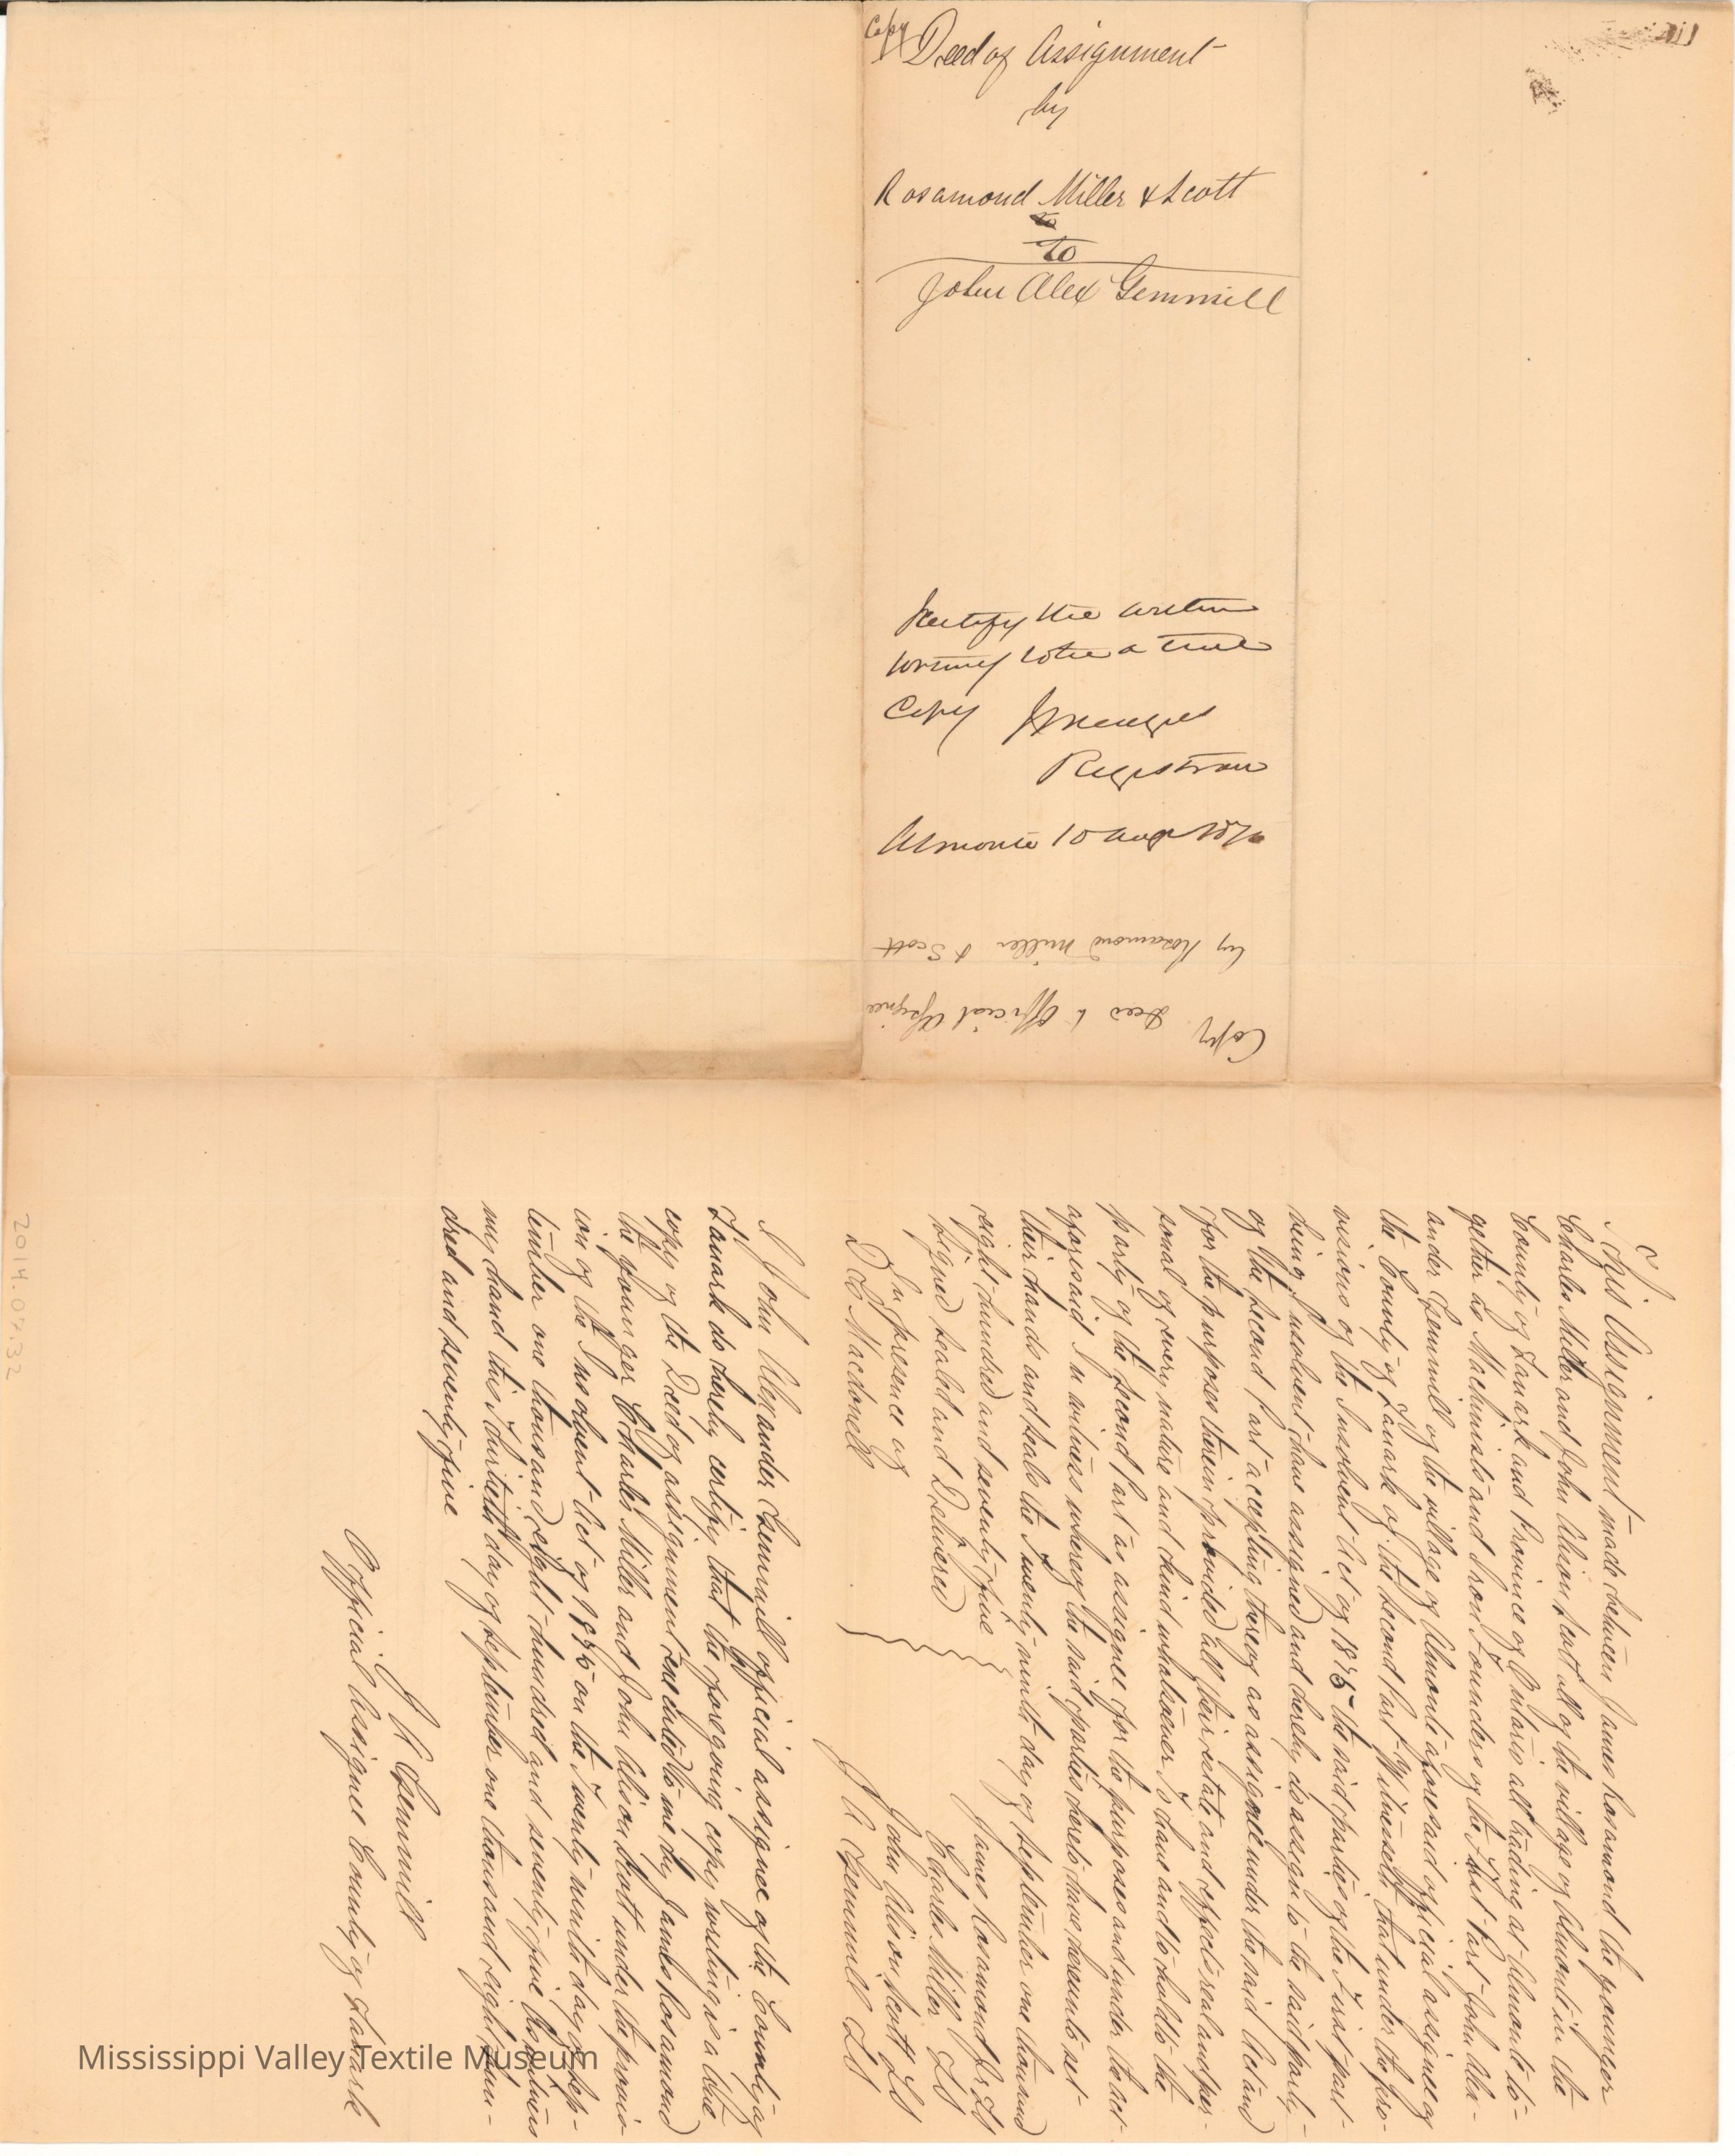 Copy Deed of Assignment
by
Rosamond Miller & Scott
to
John Alex Gemmill
I certify the within
writing to be a true
Copy
Registrar
Almonte 10 Aug 1876
Copy Deed to Official Assignee
by Rosamond Miller & Scott
This Assignment made between James Rosamond the younger
Charles Miller and John Alison Scott all of the village of Almonte in the
County of Lanark and Province of Ontario all trading at Almonte to-
gether as Machinists and Iron Founders of the First Part John Alex-
ander Gemmill of the village of Almonte aforesaid official assignee of
the County of Lanark of the second Part Witnesseth that under the pro-
visions of the Insolvent Act of 1875 the said parties of the First part
being Insolvent have assigned and hereby do assign to the said party
of the second Part accepting thereof as assignee under the said Act and
for the purposes therein provided all their estate and effects real and per-
sonal of every nature and kind whatsoever To have and to hold to the
party of the second Part as assignee for the purposes and under the act
aforesaid In witness whereof the said parties hereto have hereunto set
their hands and seals the Twenty ninth day of September one thousand
eight hundred and seventy five
Signed Sealed and Delivered
In presence of
D G Macdonell
James Rosamond Jr LS
Charles Miller LS
John Alison Scott LS
J A Gemmill LS
I John Alexander Gemmill official assignee of the County of
Lanark do hereby certify that the foregoing copy writing is a true
copy of the Deed of assignment executed to me by James Rosamond
the younger Charles Miller and John Alison Scott under the provis-
ion of the Insolvent Act of 1875 on the Twenty ninth day of Sep-
tember one thousand eight hundred and seventy five As witness
my hand this Thirtieth day of September one thousand eight hun-
dred and seventy five
J A Gemmill
Official Assignee County of Lanark
2014.07.32
Mississippi Valley Textile Museum